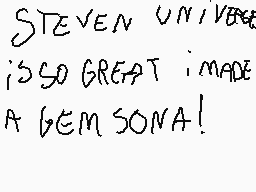 STEVEN UNIVERSE
iS SO GREAT i MADE
A GEM SONA!